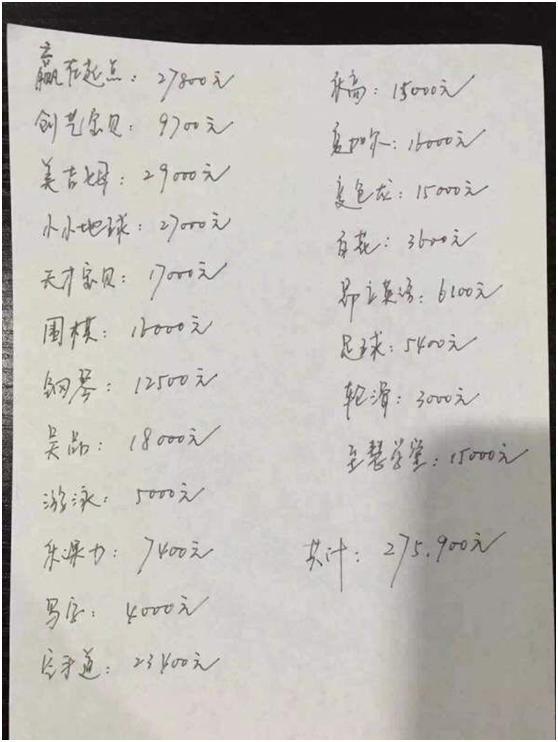 赢在起点：27800元
创艺宝贝：9700元
美吉姆：29000元
小小地球：27000元
天才宝贝：17000元
围棋：16000元
钢琴：12500元
吴品：18000元
游泳：5000元
乐课力：7400元
写字：4000元
空手道：23400元
乐高：15000元
爱加尔：16000元
变色龙：15000元
百花：3600元
昂立英语：6100元
足球：5400元
轮滑：3000元
至慧学堂：15000元
共计：275.900元